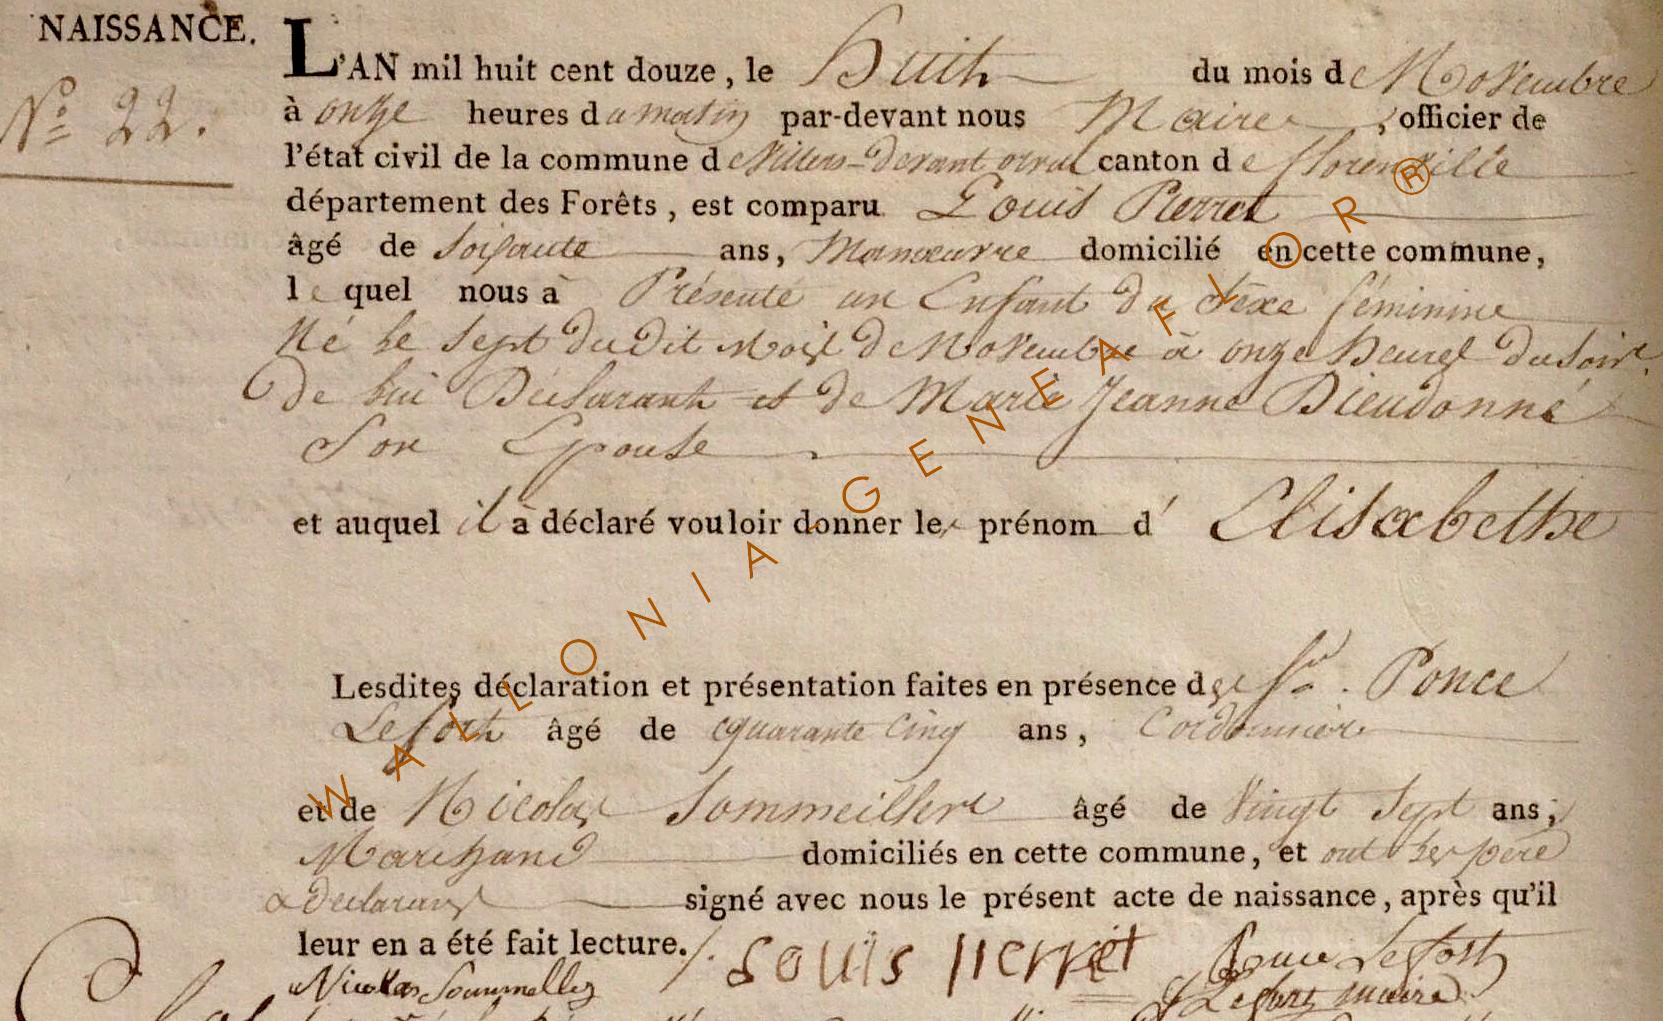 NAISSANCE.
N° 22.
L'AN mil huit cent douze, le Huit du mois de Novembre
à onze heures du matin par-devant nous Maire, officier de
l'état civil de la commune de Villers-devant orval canton de florenville
département des Forêts, est comparu Louis Pierret
âgé de soisante ans, Manœuvre domicilié en cette commune,
le quel nous à Présenté un Enfant du sexe féminine
Né le sept du dit mois de Novembre à onze heures du soir.
De lui Déclarant et de Marie Jeanne Dieudonné
Son Epouse
et auquel il à déclaré vouloir donner le prénom d' Elisabethe
Lesdites déclaration et présentation faites en présence de Sr. Ponce
Lefort âgé de quarante cinq ans, Cordonnier
et de Nicolas Sommeillier âgé de Vingt Sept ans,
Marchand domiciliés en cette commune, et ont les père
& declarans signé avec nous le présent acte de naissance, après qu'il
leur en a été fait lecture./.
Louis pierret
Ponce Lefort
Nicolas Sommellier
Lefort maire
WALLONIA-GENEAFLOR®